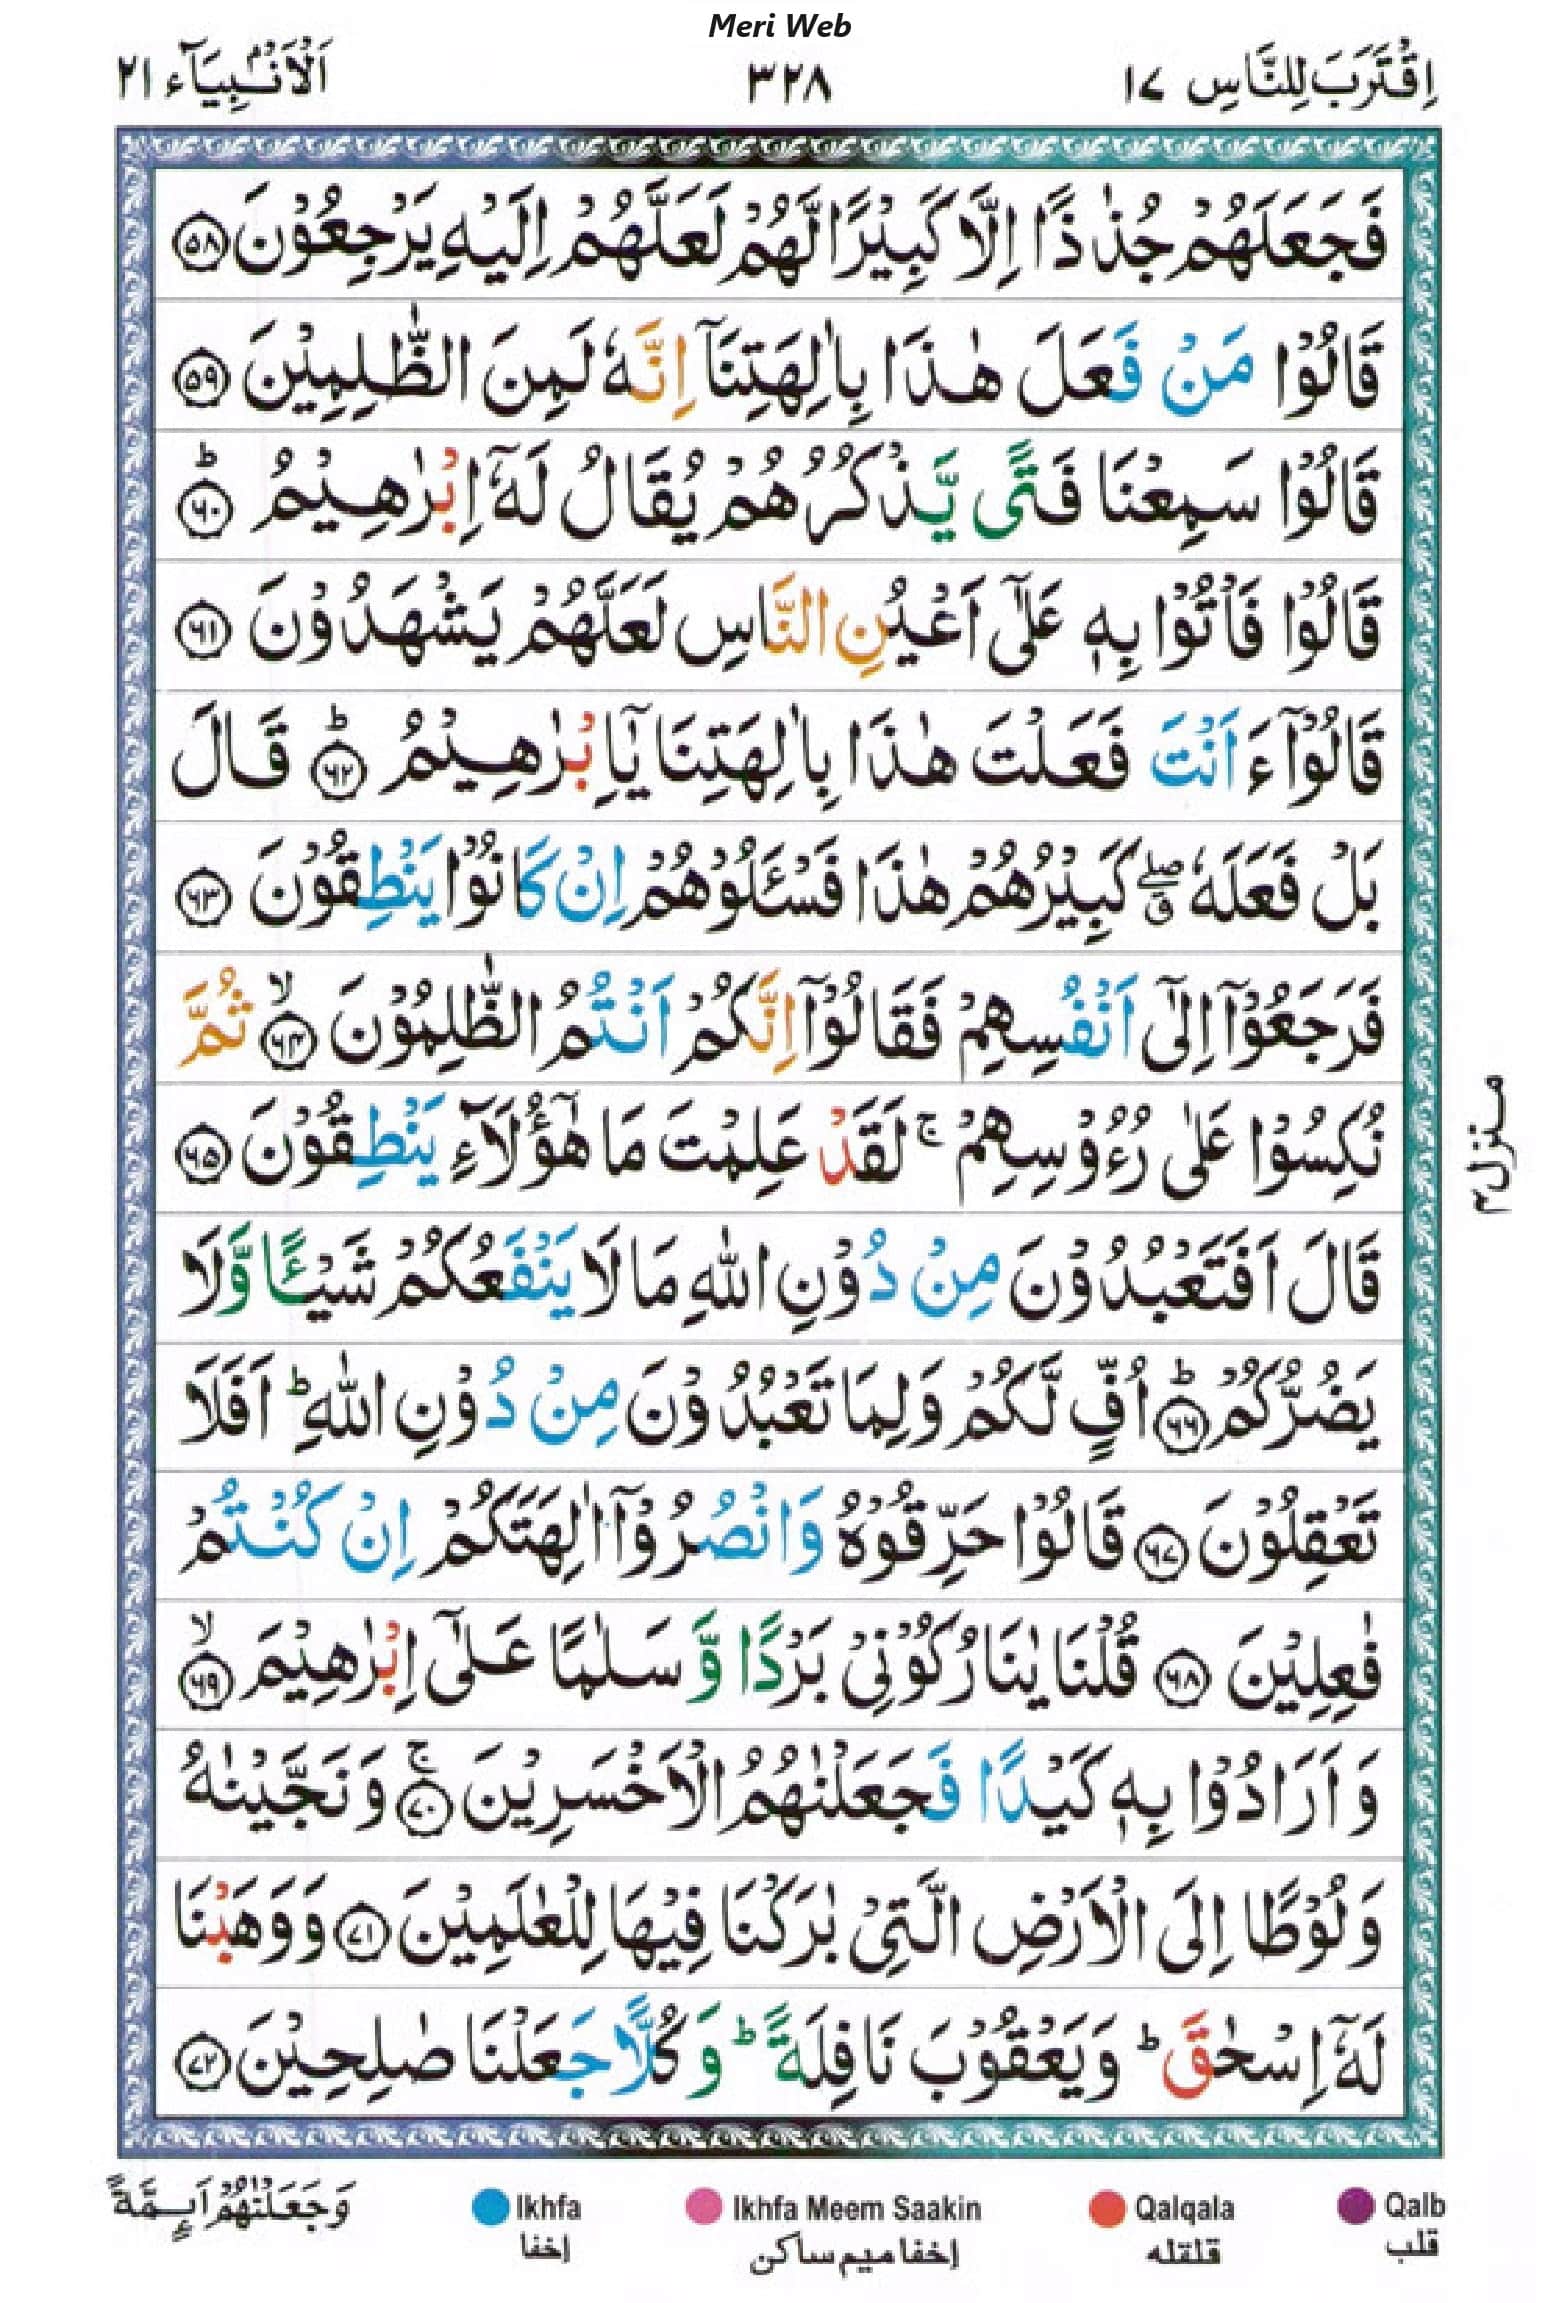 Meri Web
اِقْتَرَبَ لِلنَّاسِ ١٧ ٣٢٨ اَلْاَنْۢبِيَآء ٢١
فَجَعَلَهُمْ جُذٰذًا اِلَّا كَبِيْرًا لَّهُمْ لَعَلَّهُمْ اِلَيْهِ يَرْجِعُوْنَ ۝٥٨
قَالُوْا مَنْ فَعَلَ هٰذَا بِاٰلِهَتِنَاۤ اِنَّهٗ لَمِنَ الظّٰلِمِيْنَ ۝٥٩
قَالُوْا سَمِعْنَا فَتًى يَّذْكُرُهُمْ يُقَالُ لَهٗۤ اِبْرٰهِيْمُ ؕ۝٦٠
قَالُوْا فَاْتُوْا بِهٖ عَلٰۤى اَعْيُنِ النَّاسِ لَعَلَّهُمْ يَشْهَدُوْنَ ۝٦١
قَالُوْۤا ءَاَنْتَ فَعَلْتَ هٰذَا بِاٰلِهَتِنَا يٰۤاِبْرٰهِيْمُ ؕ۝٦٢ قَالَ
بَلْ فَعَلَهٗ ۖۗ كَبِيْرُهُمْ هٰذَا فَسْـَٔلُوْهُمْ اِنْ كَانُوْا يَنْطِقُوْنَ ۝٦٣
فَرَجَعُوْۤا اِلٰۤى اَنْفُسِهِمْ فَقَالُوْۤا اِنَّكُمْ اَنْتُمُ الظّٰلِمُوْنَ ۙ۝٦٤ ثُمَّ
نُكِسُوْا عَلٰى رُءُوْسِهِمْ ۚ لَقَدْ عَلِمْتَ مَا هٰۤؤُلَآءِ يَنْطِقُوْنَ ۝٦٥
قَالَ اَفَتَعْبُدُوْنَ مِنْ دُوْنِ اللّٰهِ مَا لَا يَنْفَعُكُمْ شَيْـًٔا وَّلَا
يَضُرُّكُمْ ؕ۝٦٦ اُفٍّ لَّكُمْ وَلِمَا تَعْبُدُوْنَ مِنْ دُوْنِ اللّٰهِ ؕ اَفَلَا
تَعْقِلُوْنَ ۝٦٧ قَالُوْا حَرِّقُوْهُ وَانْصُرُوْۤا اٰلِهَتَكُمْ اِنْ كُنْتُمْ
فٰعِلِيْنَ ۝٦٨ قُلْنَا يٰنَارُ كُوْنِيْ بَرْدًا وَّسَلٰمًا عَلٰۤى اِبْرٰهِيْمَ ۙ۝٦٩
وَاَرَادُوْا بِهٖ كَيْدًا فَجَعَلْنٰهُمُ الْاَخْسَرِيْنَ ۚ۝٧٠ وَنَجَّيْنٰهُ
وَلُوْطًا اِلَى الْاَرْضِ الَّتِيْ بٰرَكْنَا فِيْهَا لِلْعٰلَمِيْنَ ۝٧١ وَوَهَبْنَا
لَهٗۤ اِسْحٰقَ ؕ وَيَعْقُوْبَ نَافِلَةً ؕ وَكُلًّا جَعَلْنَا صٰلِحِيْنَ ۝٧٢
منزل٤
وَجَعَلْنٰهُمْ اَىِٕمَّةً
Ikhfa Ikhfa Meem Saakin Qalqala Qalb
إخفا إخفا میم ساکن قلقله قلب